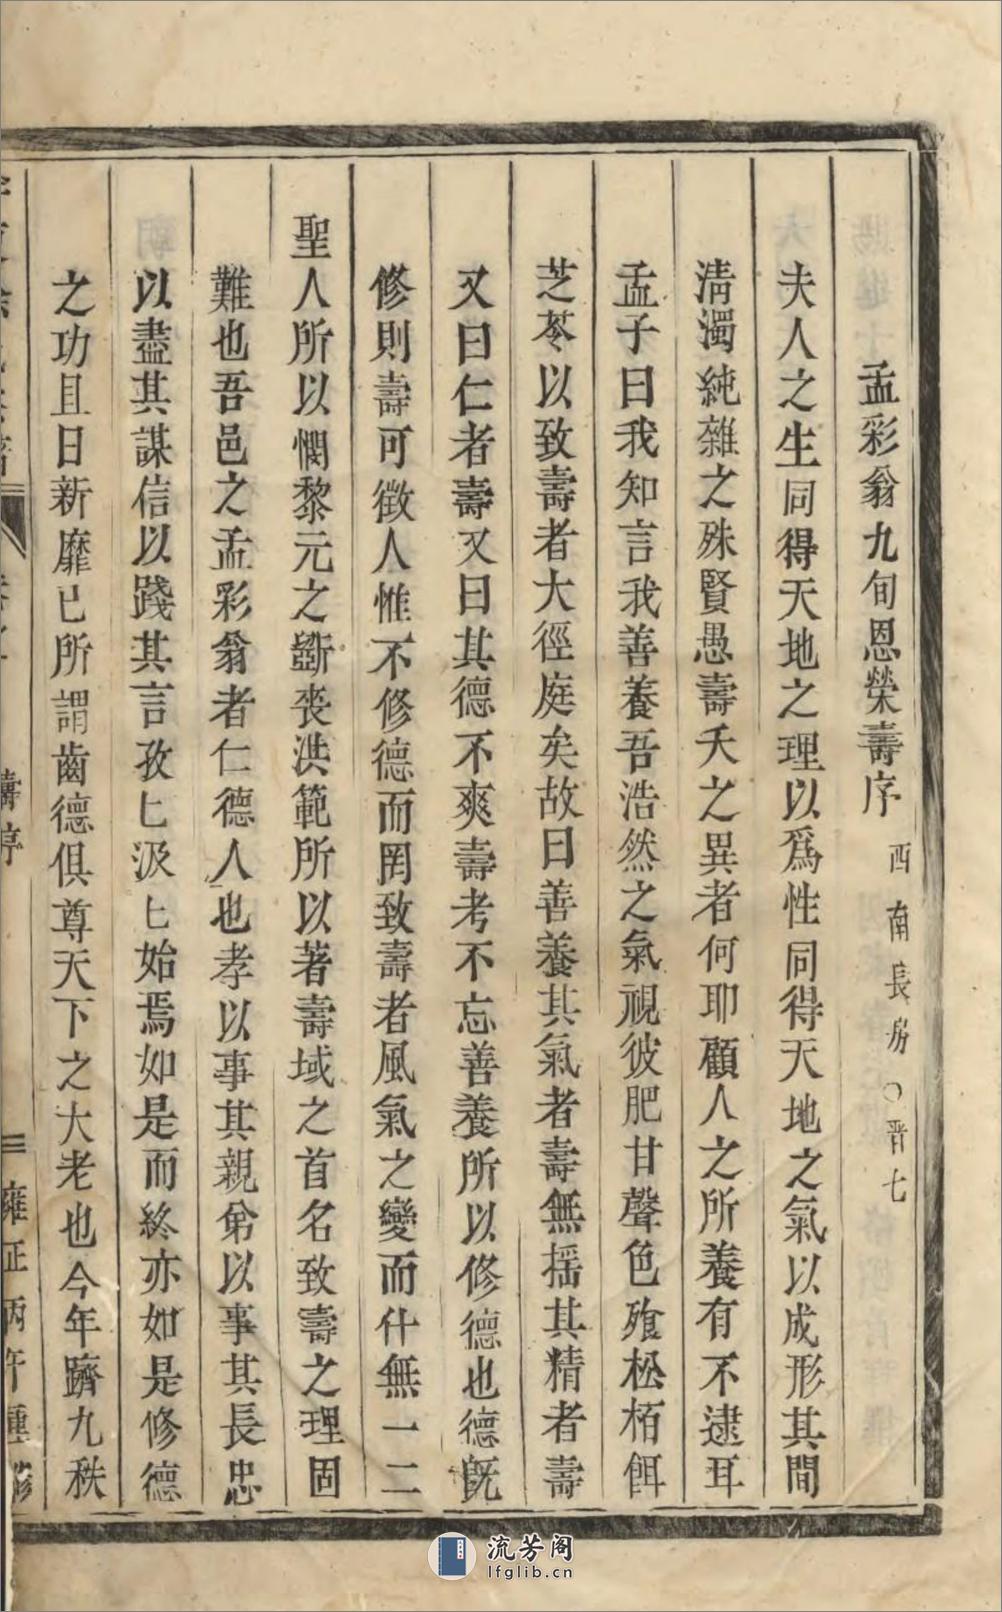 孟彩翁九旬恩榮壽序 西南長房○晋七
夫人之生同得天地之理以爲性同得天地之氣以成形其間
淸濁純雜之殊賢愚壽夭之異者何耶顧人之所養有不逮耳
孟子曰我知言我善養吾浩然之氣視彼肥甘聲色飱松栢餌
芝苓以致壽者大徑庭矣故曰善養其氣者壽無揺其精者壽
又曰仁者壽又曰其德不爽壽考不忘善養所以修德也德旣
修則壽可徵人惟不修德而罔致壽者風氣之變而什無一二
聖人所以憫黎元之斵喪洪範所以著壽域之首名致壽之理固
難也吾邑之孟彩翁者仁德人也孝以事其親弟以事其長忠
以盡其謀信以踐其言孜匕汲匕始焉如是而終亦如是修德
之功且日新靡已所謂齒德俱尊天下之大老也今年躋九秩
壽序 雍正丙午重修
流芳阁
lfglib.cn